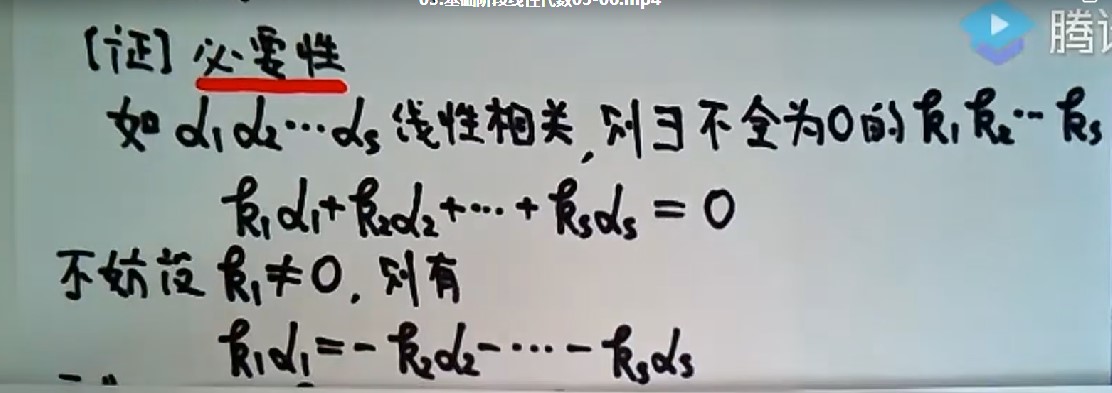 03.基础阶段线性代数05-06.mp4
腾讯
[证] 必要性
如 α₁α₂…αₛ 线性相关,则∃不全为0的 k₁k₂…kₛ
k₁α₁+k₂α₂+…+kₛαₛ=0
不妨设 k₁≠0, 则有
k₁α₁=-k₂α₂-…-kₛαₛ